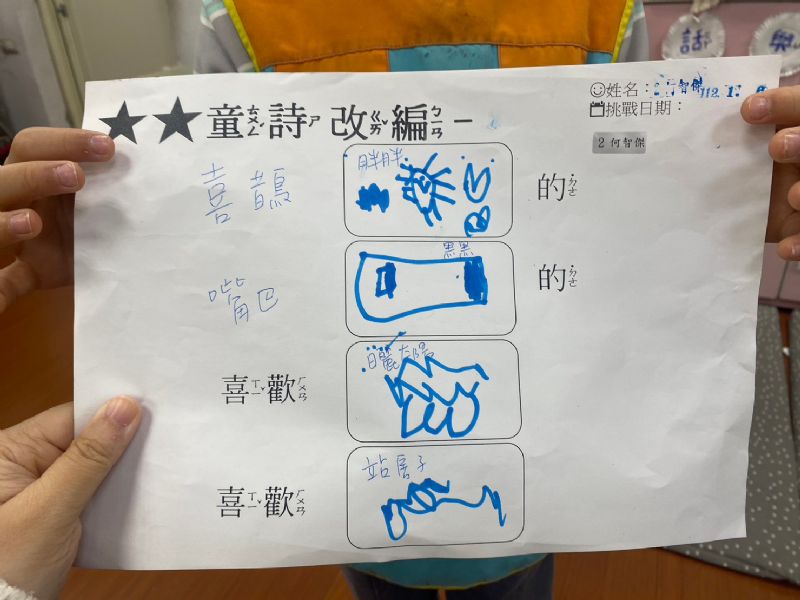 話 樂
☺姓名:何智傑 112.1
挑戰日期:
2 何智傑
★★童ㄊㄨㄥˊ詩ㄕ 改ㄍㄞˇ編ㄅㄧㄢ一
喜鵲 胖胖 的ㄉㄜ˙
嘴巴 黑黑 的ㄉㄜ˙
喜ㄒㄧˇ歡ㄏㄨㄢ 日曬太陽
喜ㄒㄧˇ歡ㄏㄨㄢ 站房子